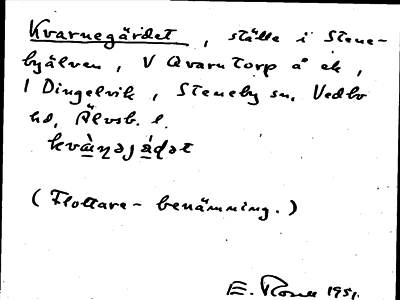 Kvarnegärdet, ställe i Stene-
byälven, V Qvarntorp å ek,
l Dingelvik, Steneby sn, Vedbo
hd, Älvsb. l.
(Flottare-benämning.)
E. 1951.